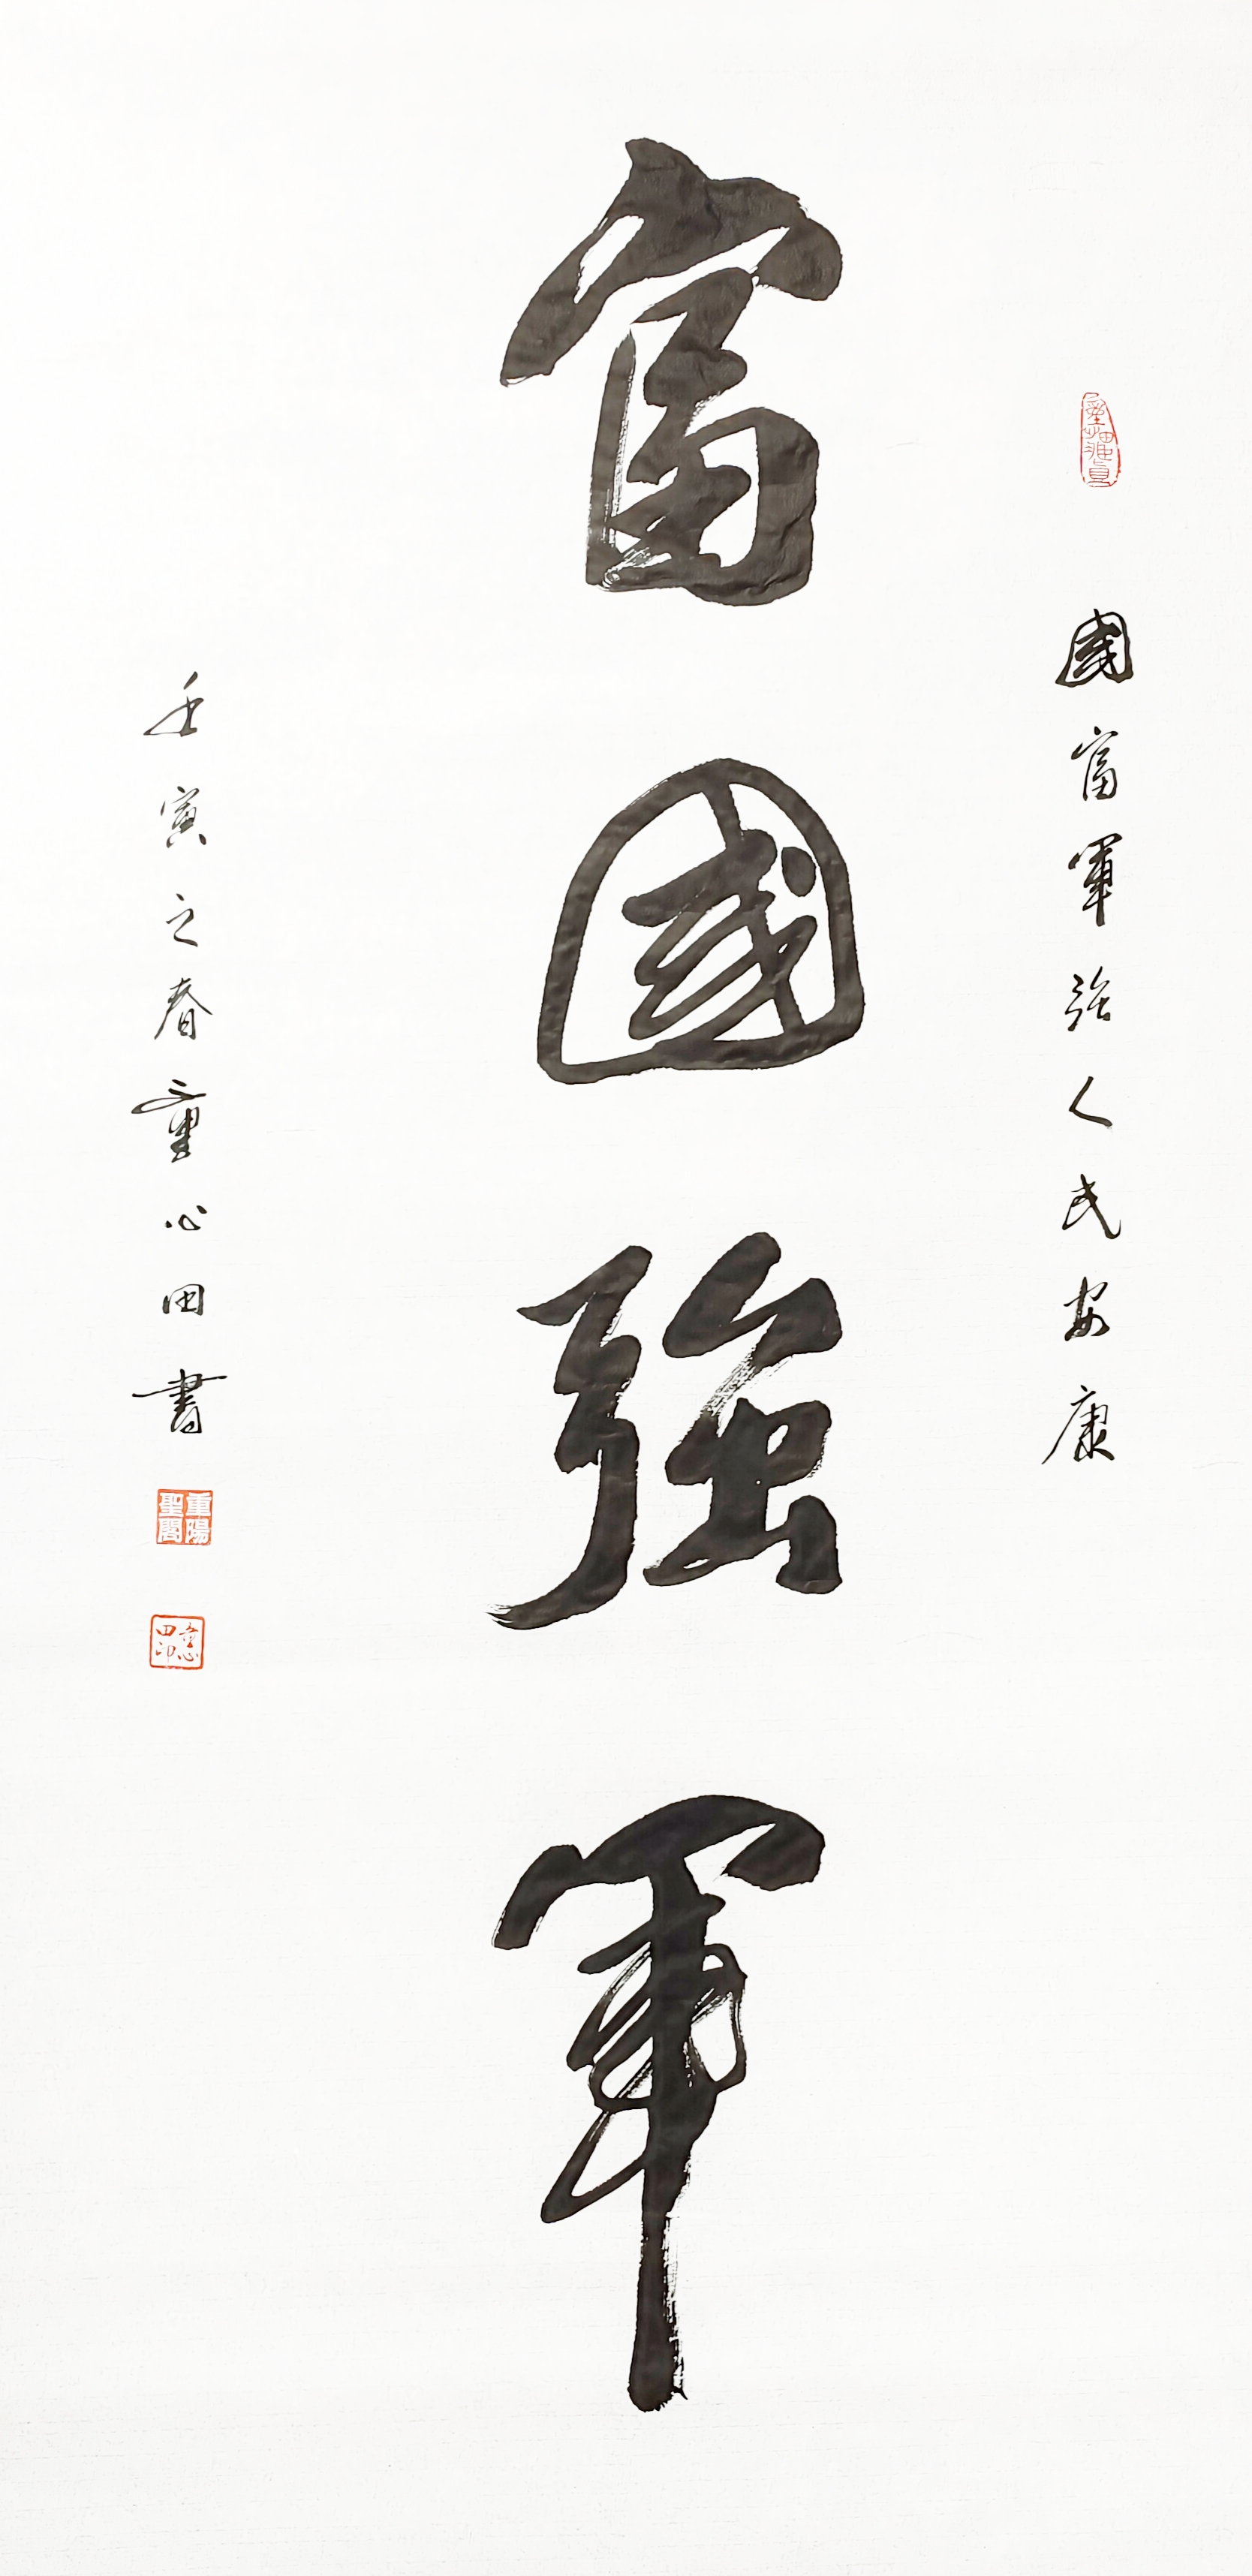 國富軍強人民安康
富國強軍
壬寅之春童心田書
重陽
聖閣
童心
田印